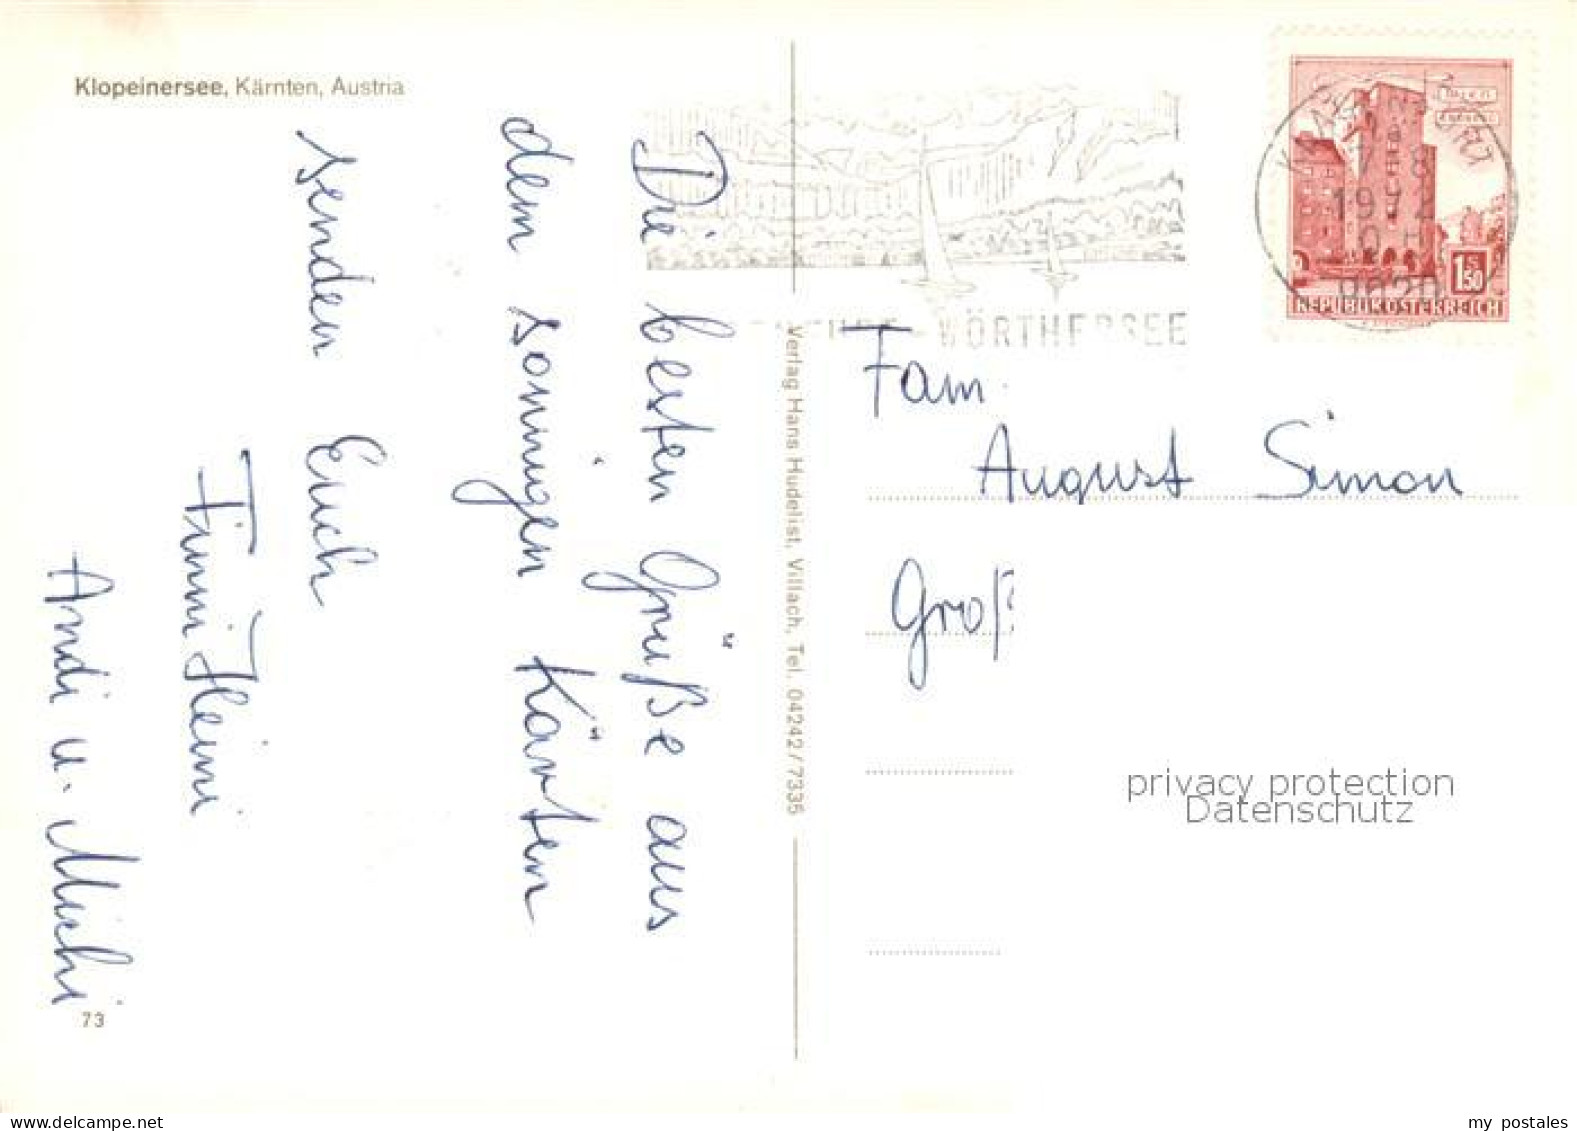 Klopeinersee, Kärnten, Austria
Die besten Grüße aus
dem sonnigen Kärnten
senden Euch
Finni Heini
Andi u. Michi
73
Verlag Hans Hudelist, Villach, Tel. 04242/7335
WÖRTHERSEE
1972
9020
1 S 50
REPUBLIK ÖSTERREICH
Fam.
August Simon
Groß
privacy protection
Datenschutz
my postales